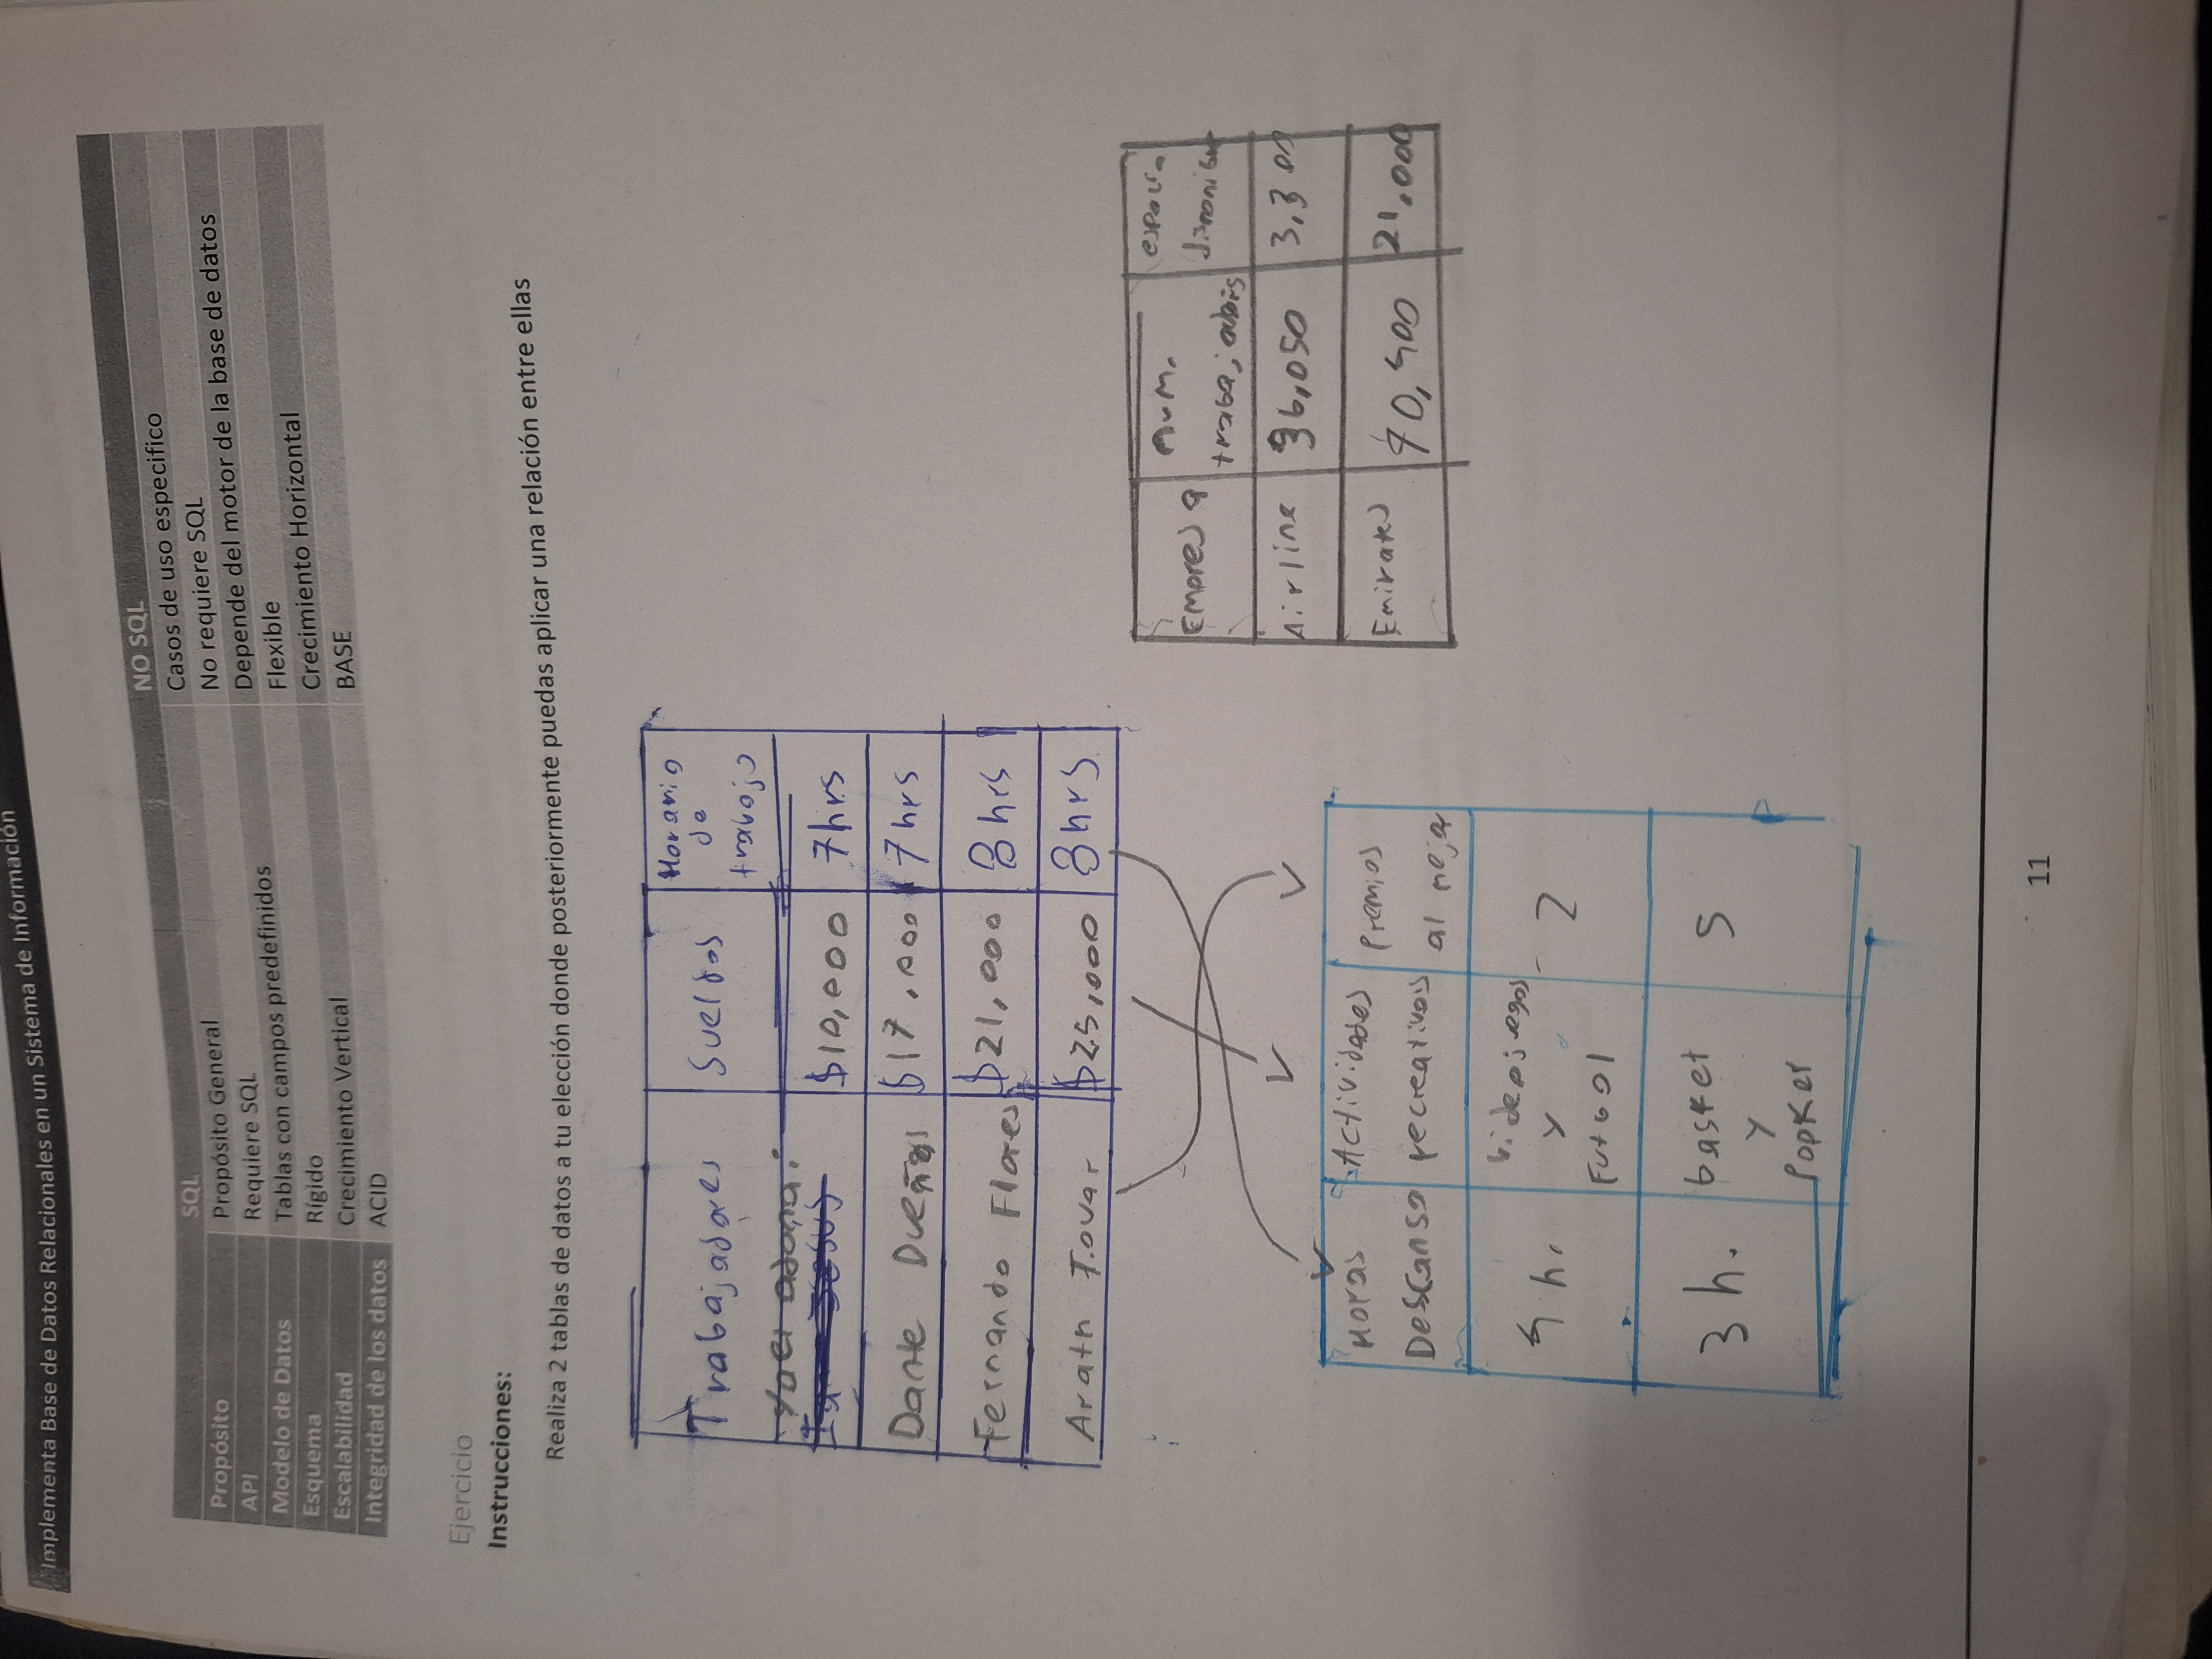 Implementa Base de Datos Relacionales en un Sistema de Información
SQL NO SQL
Propósito Propósito General Casos de uso especifico
API Requiere SQL No requiere SQL
Modelo de Datos Tablas con campos predefinidos Depende del motor de la base de datos
Esquema Rígido Flexible
Escalabilidad Crecimiento Vertical Crecimiento Horizontal
Integridad de los datos ACID BASE
Ejercicio
Instrucciones:
Realiza 2 tablas de datos a tu elección donde posteriormente puedas aplicar una relación entre ellas
Trabajadores Sueldos Horario
de
trabajo
$10,000 7hrs
Dante Dueñas $17,000 7hrs
Fernando Flores $21,000 8hrs
Aratn Tovar $25,000 8hrs
Empresa num. espacio
trabajadors
Airline 36,050
Emirates 40,400 21,000
Horas Actividades premios
Descanso recreativas al mejor
4 h. videojuegos 2
y
Futbol
3 h. basket 5
y
Popker
11